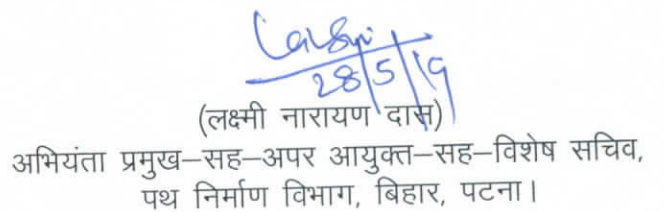 28/5/19
(लक्ष्मी नारायण दास)
अभियंता प्रमुख–सह–अपर आयुक्त–सह–विशेष सचिव,
पथ निर्माण विभाग, बिहार, पटना।